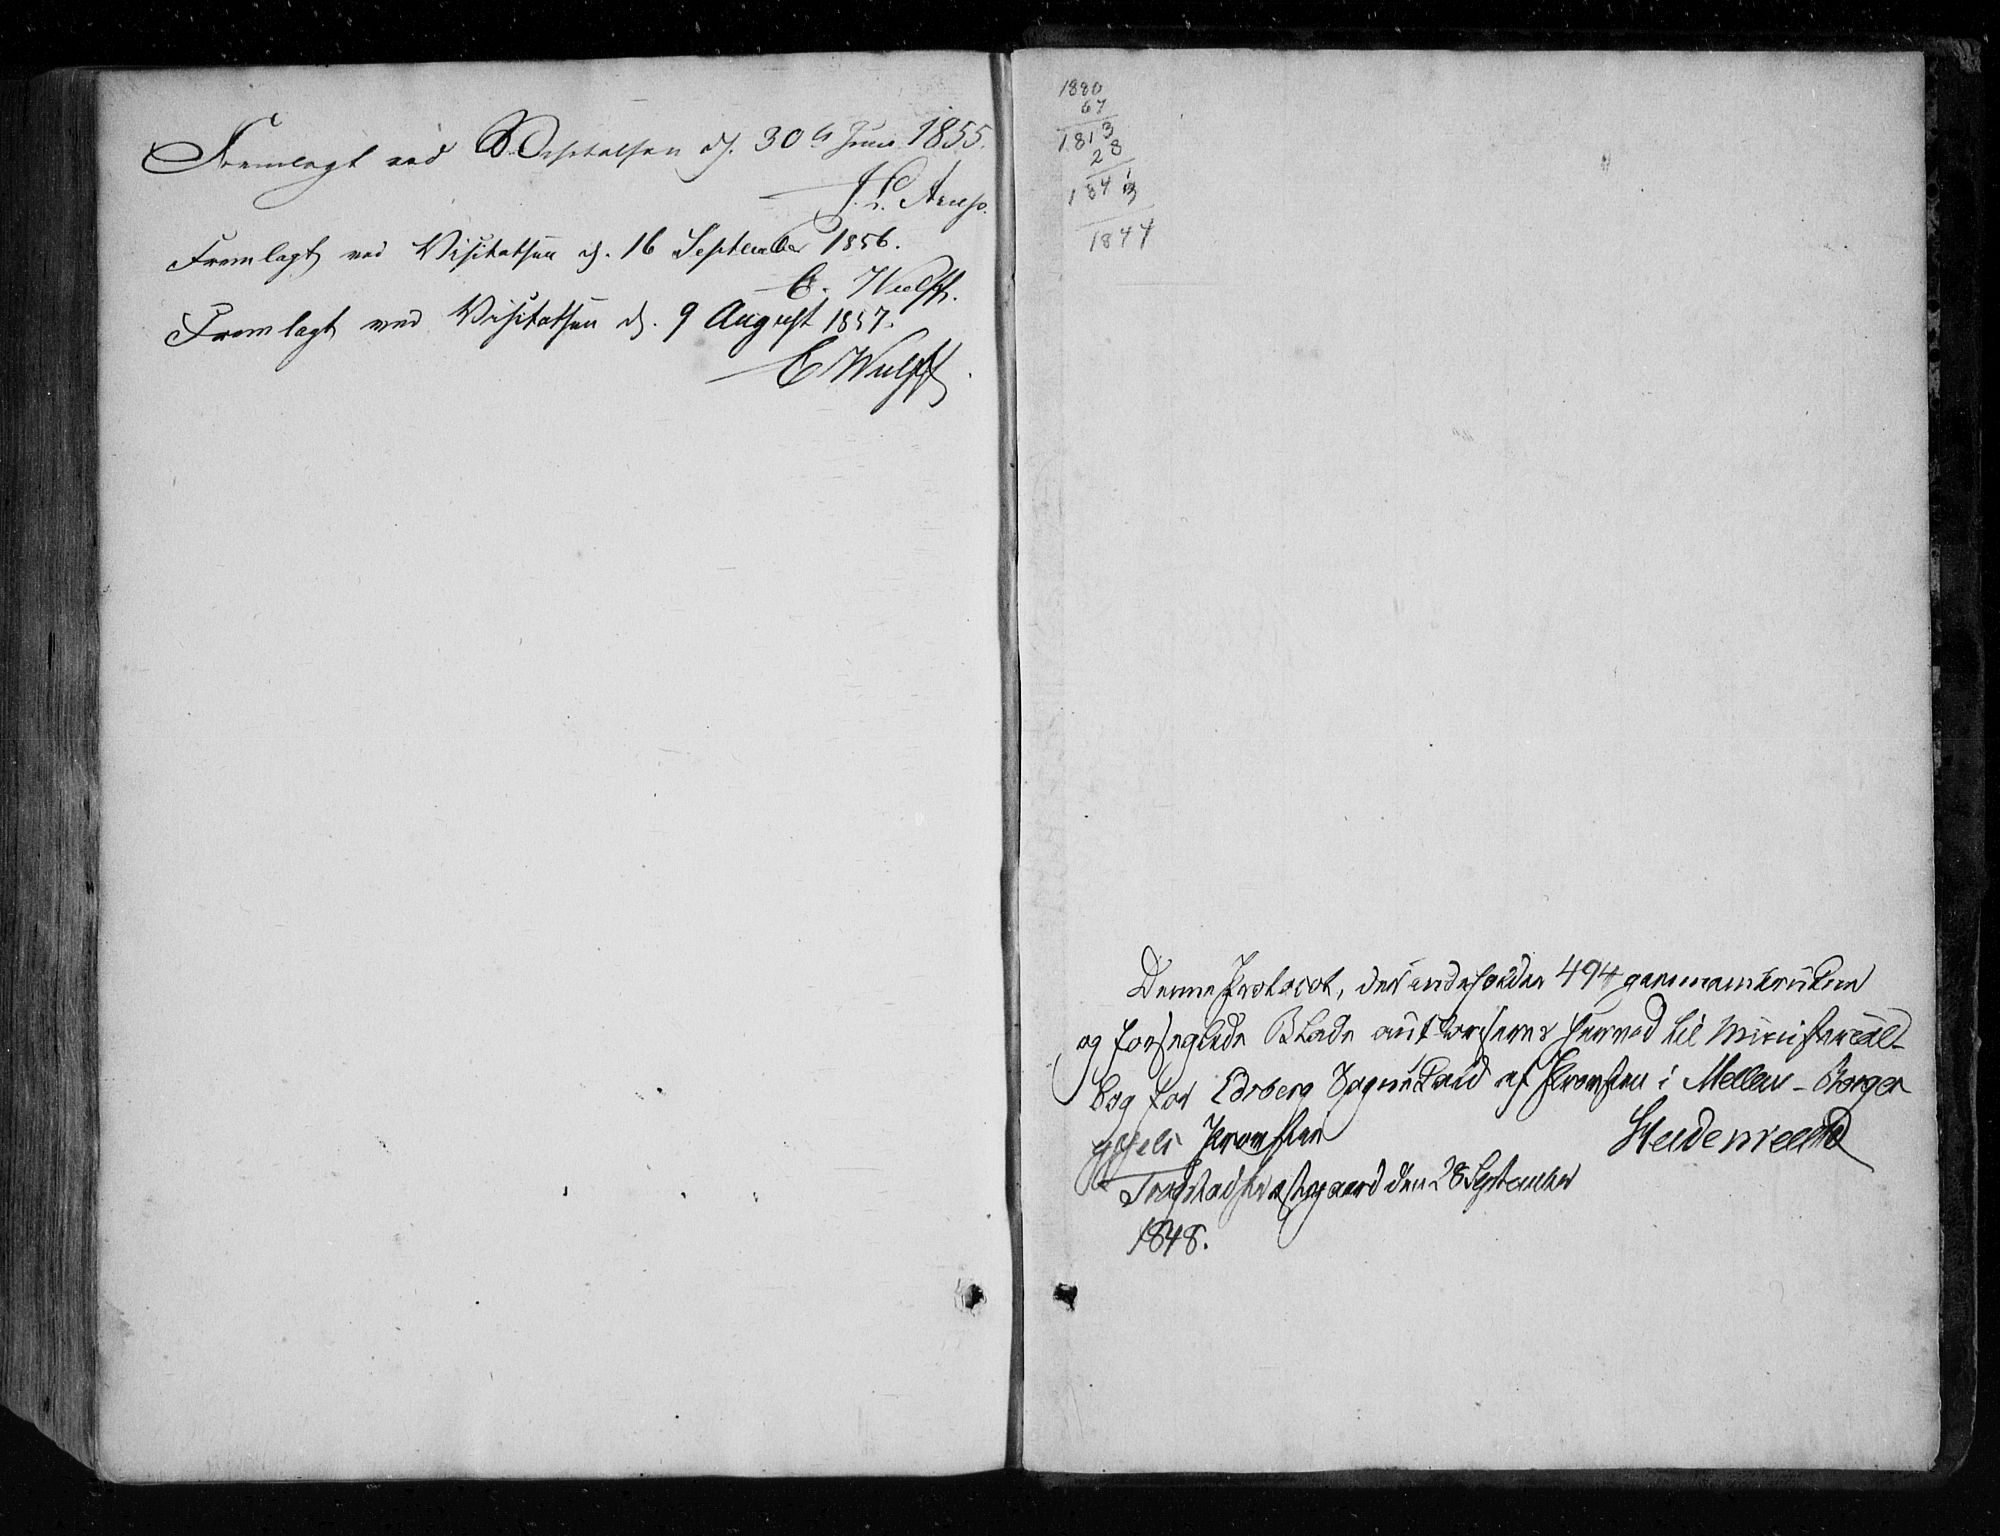 Fremlagt ved Visitatsen d. 30te Juni 1855.
J. L. Arup.
Fremlagt ved Visitatsen d. 16 September 1856.
C. Wulff.
Fremlagt ved Visitatsen d. 9 August 1857.
C Wulff
1880
67
1813
28
1843
1844
Denne Protocol, der indeholder 494 gennemtrukne
og forseglede Blade authoriseres herved til Ministerial-
bog for Edsberg Sognekald af Provsten i Mellem-Borge-
Provsten
Heidenreich
Trøgstad Præstegaard den 28 September
1848.